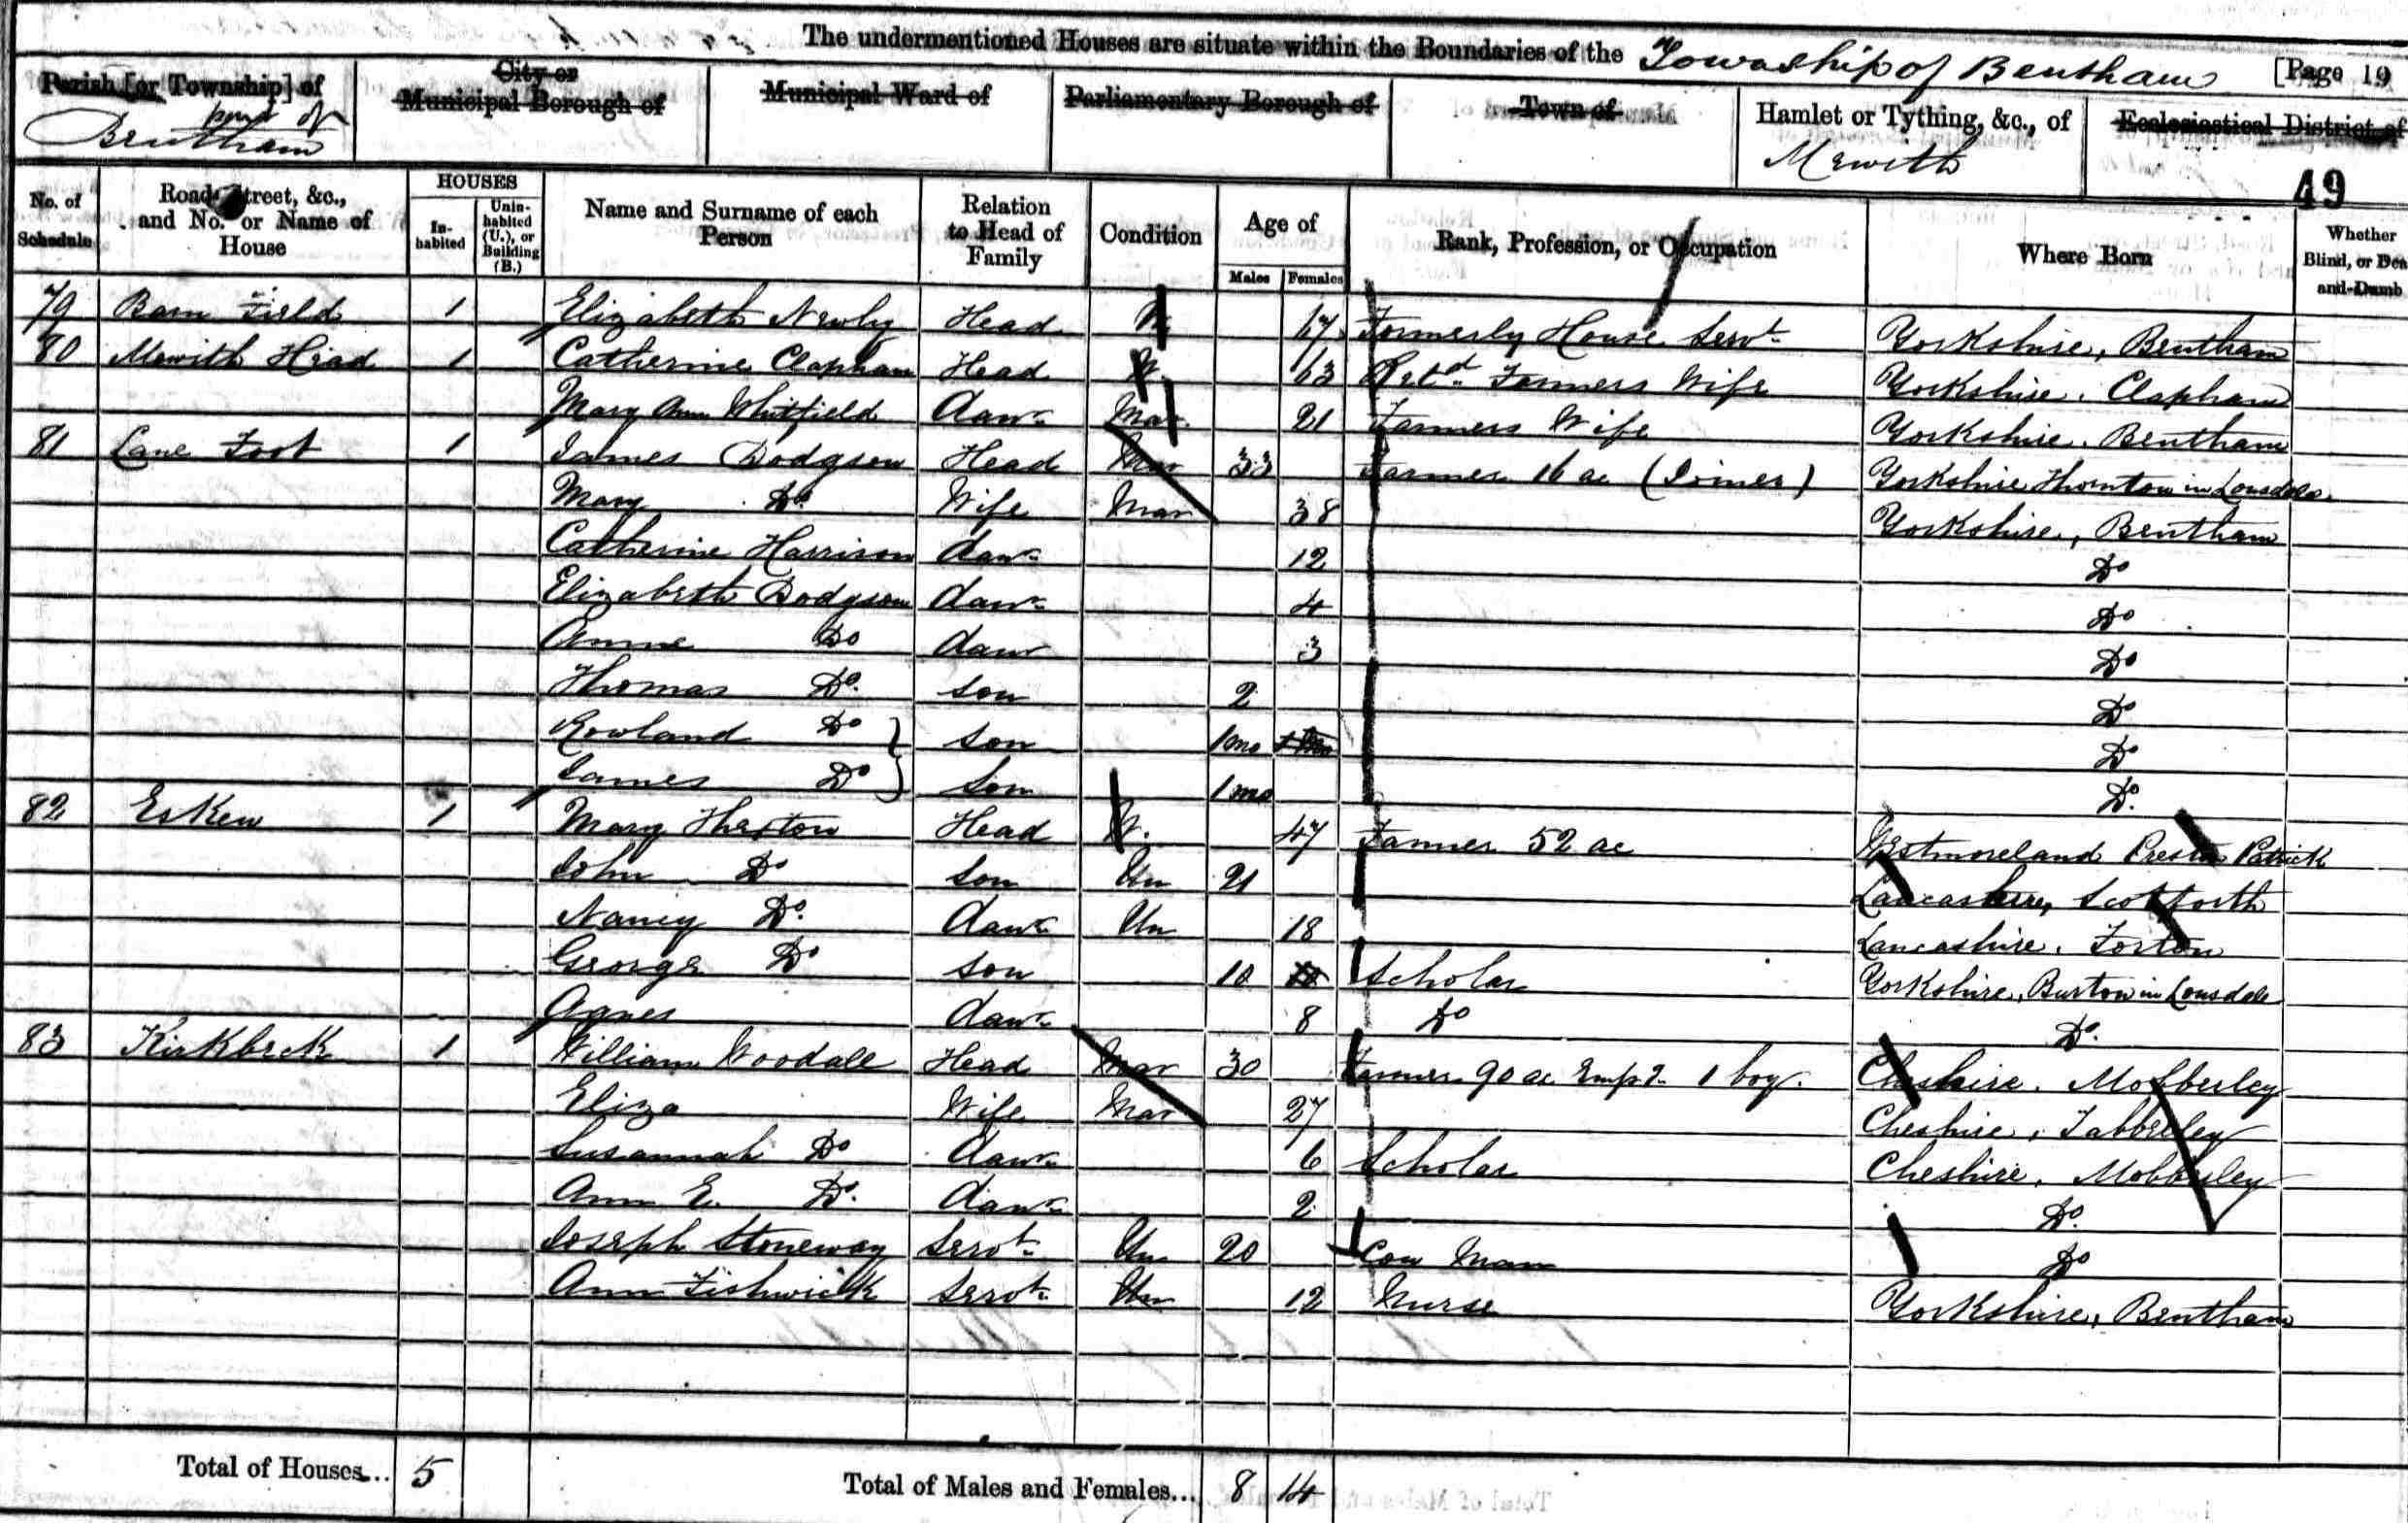 The undermentioned Houses are situate within the Boundaries of the Township of Bentham [Page 19
Parish [or Township] of part of Bentham
City or Municipal Borough of
Municipal Ward of
Parliamentary Borough of
Town of
Hamlet or Tything, &c., of Mewith
Ecclesiastical District of
49
No. of Schedule
Road, Street, &c., and No. or Name of House
HOUSES
In-habited
Unin-habited (U.), or Building (B.)
Name and Surname of each Person
Relation to Head of Family
Condition
Age of
Males
Females
Rank, Profession, or Occupation
Where Born
Whether Blind, or Dea and-Dumb
79 Barn Field 1 Elizabeth Newby Head 67 Formerly House Servt Yorkshire, Bentham
80 Mewith Head 1 Catherine Clapham Head W. 63 Retd Farmers Wife Yorkshire. Clapham
Mary Ann Whitfield Daur Mar. 21 Farmers Wife Yorkshire. Bentham
81 Lane Foot 1 James Dodgson Head Mar 33 Farmer 16 ac (Joiner) Yorkshire Thornton in Lonsdale
Mary Do. Wife Mar 38 Yorkshire, Bentham
Catherine Harrison daur 12 Do
Elizabeth Dodgson daur 4 Do
Anne Do daur 3 Do
Thomas Do. son 2 Do
Rowland Do } son 1 mo Do
James Do } son 1 mo Do.
82 Eskew 1 Mary Thexton Head W. 47 Farmer 52 ac Westmoreland Preston Patrick
John Do son Un 21 Lancashire, Scotforth
Nancy Do. daur Un 18 Lancashire. Forton
George Do son 10 Scholar Yorkshire, Burton in Lonsdale
Agnes daur 8 Do Do.
83 Kirkbeck 1 William Woodall Head Mar 30 Farmer 90 ac Emp. 1 boy. Cheshire. Mobberley
Eliza Wife Mar 27 Cheshire, Tabberley
Susannah Do daur 6 Scholar Cheshire. Mobberley
Ann E. Do. daur 2 Do.
Joseph Stoneway Servt. Un 20 Cow Man Do
Ann Fishwick Servt. Un 12 Nurse Yorkshire, Bentham
Total of Houses... 5
Total of Males and Females... 8 14